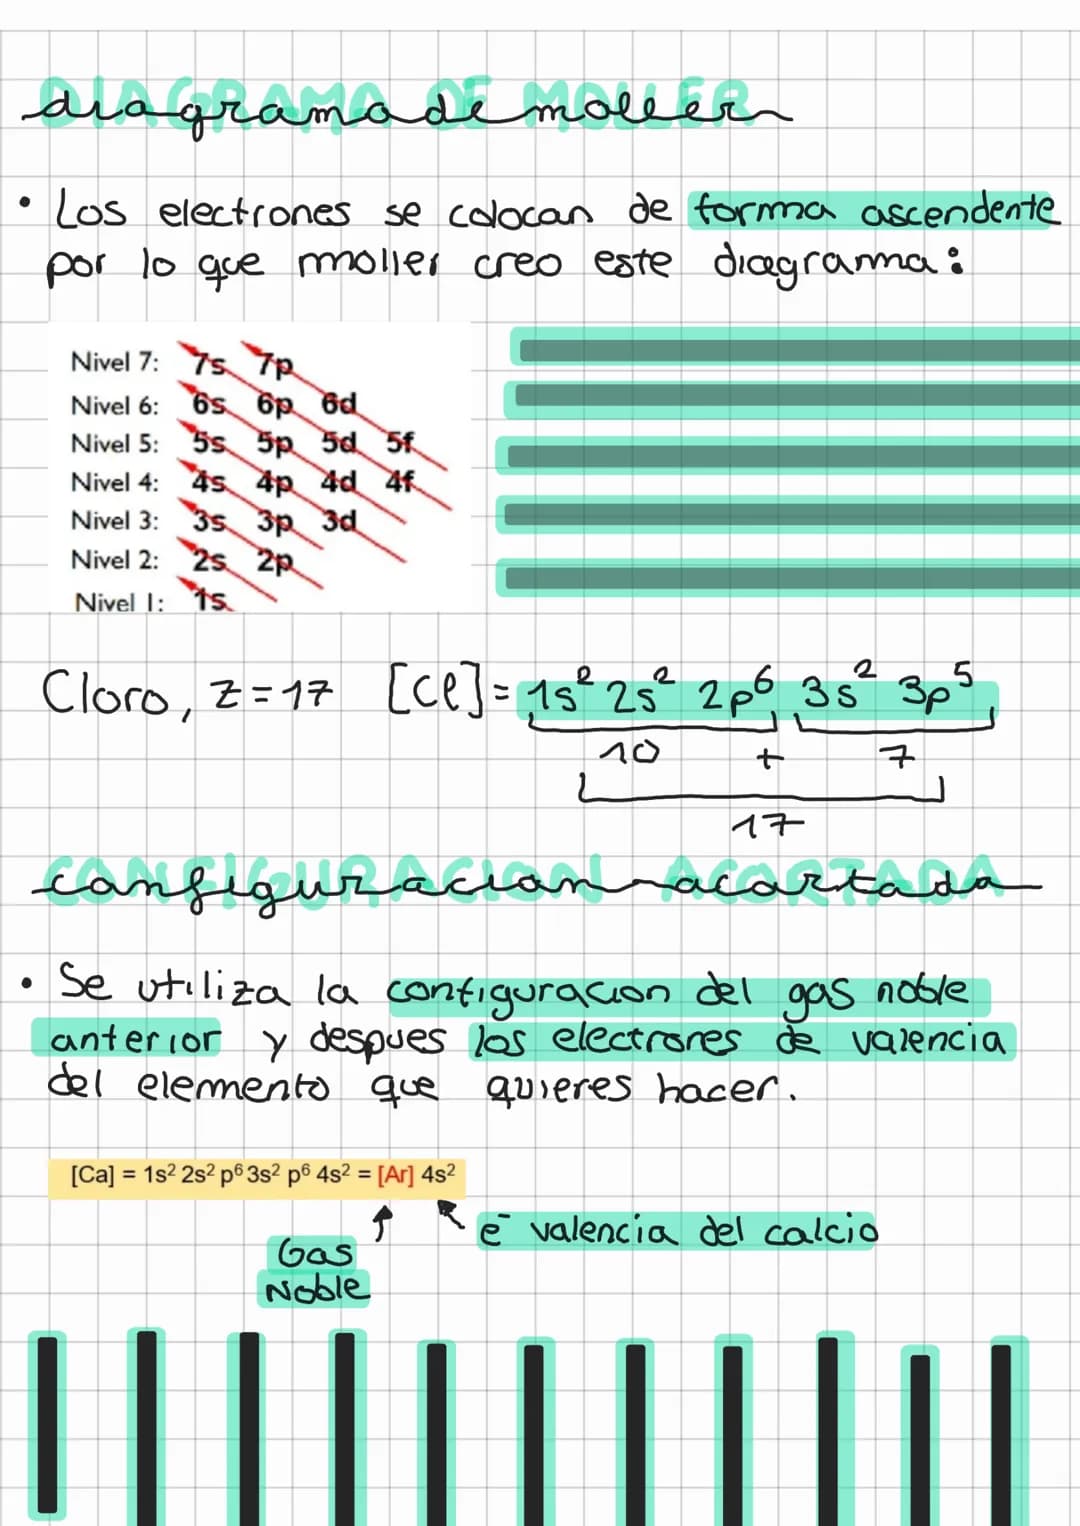 DIAGRAMA DE MOLLER
diagrama de moller
• Los electrones se colocan de forma ascendente
por lo que moller creo este diagrama:
Nivel 7: 7s 7p
Nivel 6: 6s 6p 6d
Nivel 5: 5s 5p 5d 5f
Nivel 4: 4s 4p 4d 4f
Nivel 3: 3s 3p 3d
Nivel 2: 2s 2p
Nivel 1: 1s
Cloro, Z=17 [Cl]= 1s² 2s² 2p⁶ 3s² 3p⁵
10 + 7
17
CONFIGURACION ACORTADA
configuracion acortada
• Se utiliza la configuracion del gas noble
anterior y despues los electrones de valencia
del elemento que quieres hacer.
[Ca] = 1s² 2s² p⁶ 3s² p⁶ 4s² = [Ar] 4s²
e⁻ valencia del calcio
Gas
Noble